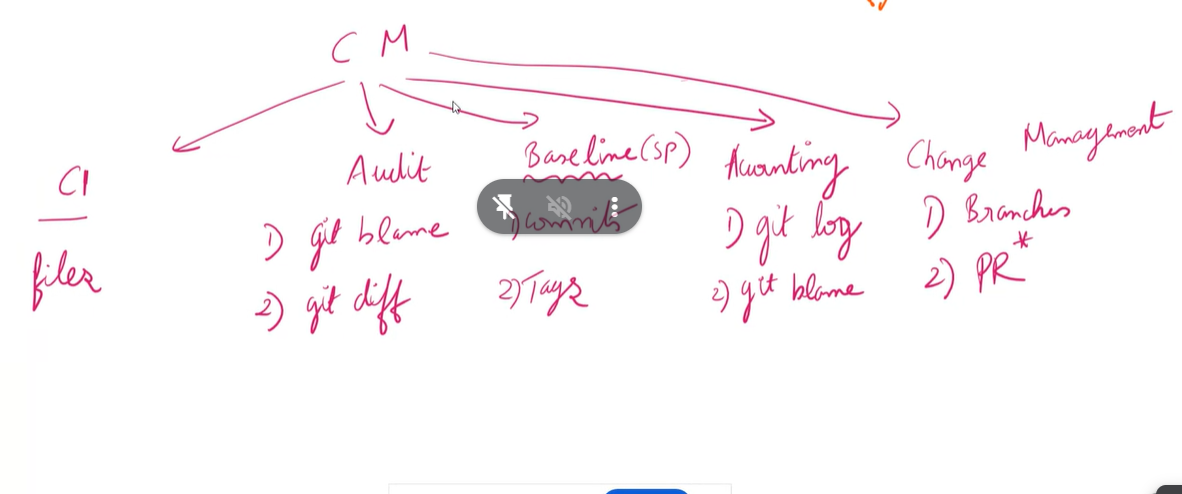 CM
CI
files
Audit
1) git blame
2) git diff
Baseline (SP)
1) Commits
2) Tags
Accounting
1) git log
2) git blame
Change Management
1) Branches
2) PR*